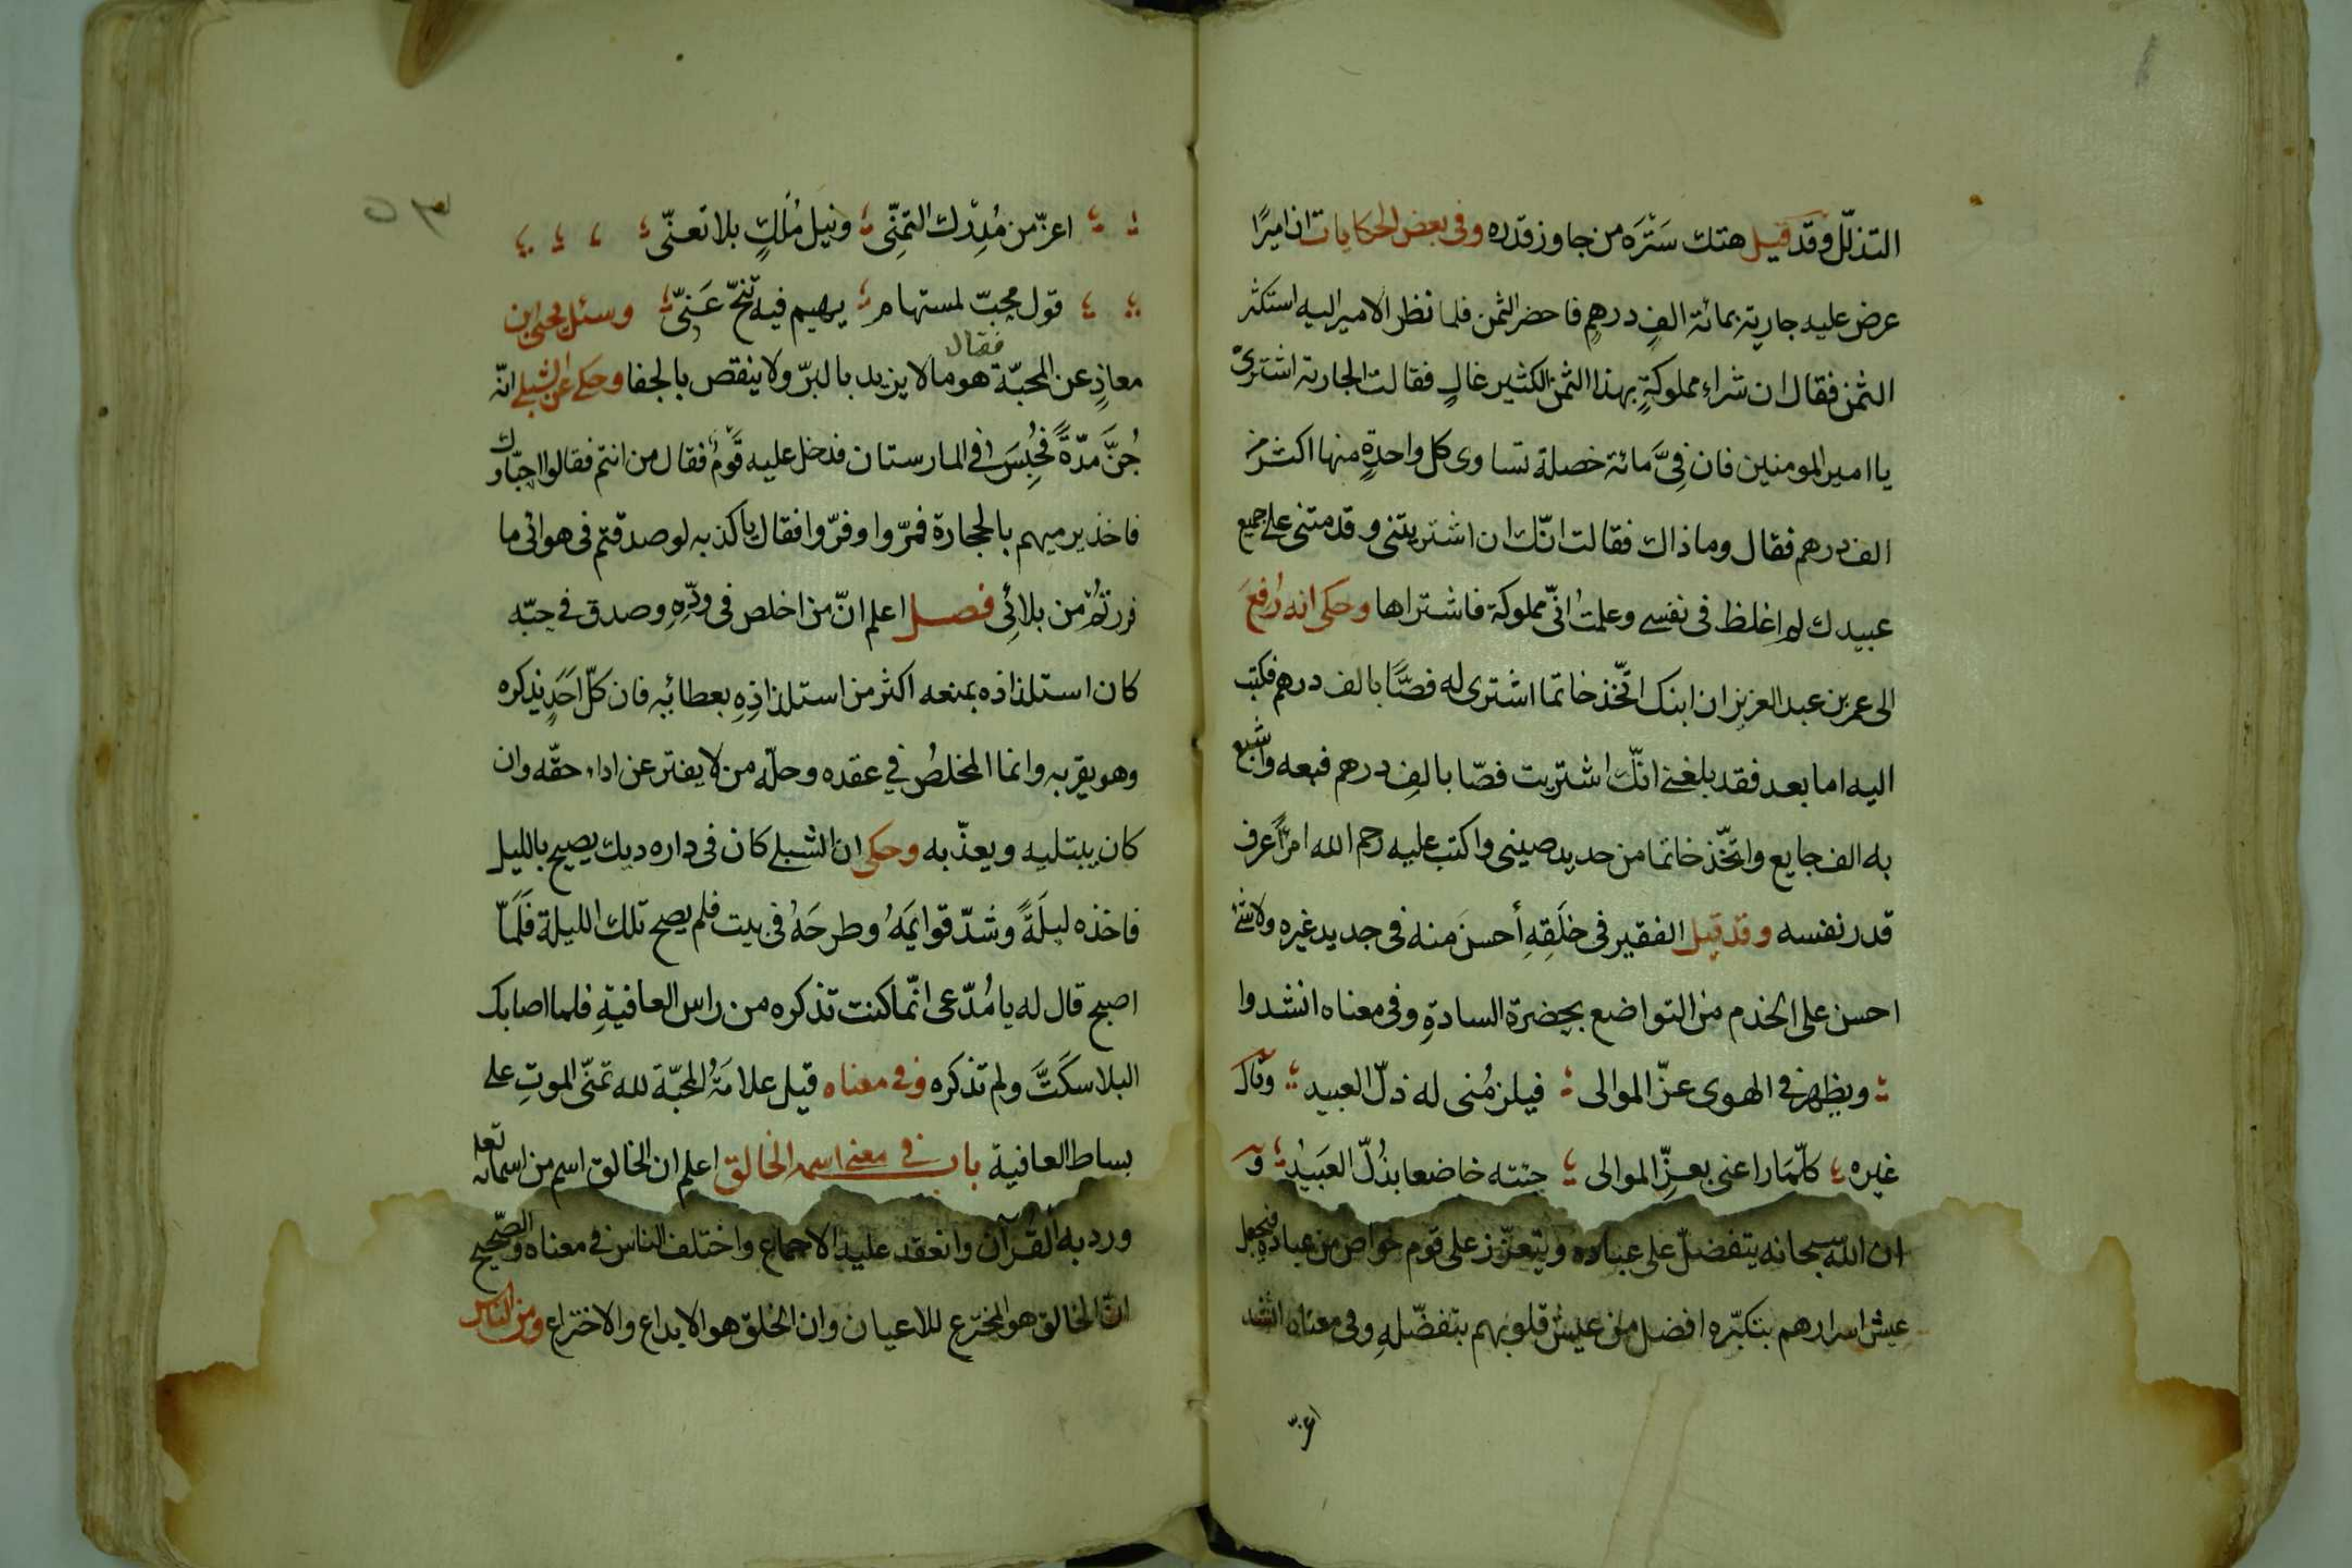 التذلّل وقد قيل هتك سَتْرَه من جاوز قدره وفى بعض الحكايات ان اميرًا
عرض عليه جارية بمائة الفِ درهمٍ فاحضر الثمن فلما نظر الامير اليه استكثر
الثمن فقال ان شراء مملوكةٍ بهذا الثمن الكثير غالٍ فقالت الجارية اشترى
يا امير المومنين فان فِىَّ مائة خصلة تساوى كل واحدةٍ منها اكثر من
الف درهم فقال وما ذاك فقالت انّك ان اشتريتنى وقدمتنى على جميع
عبيدك لم اغلظ فى نفسى وعلمتُ انّى مملوكة فاشتراها وحكى انه رُفِعَ
الى عمر بن عبد العزيز ان ابنك اتّخذ خاتما اشترى له فصًّا بالف درهم فكتب
اليه اما بعد فقد بلغنى انّك اشتريت فصّا بالفِ درهم فبعه واشبع
به الف جايع واتّخذ خاتما من حديد صينى واكتب عليه رحم الله امرًأ عرف
قدر نفسه وقد قيل الفقير فى خَلَقِهِ أحسنَ منه فى جديد غيره ولا شئ
احسن على الخدم من التواضع بحضرة السادةِ وفى معناه انشدوا
ويظهر فى الهوى عزّ الموالى فيلزمُنى له ذلّ العبيد وقال
غيره كلّمَا راعنى بعزّ الموالى جئته خاضعا بذُلّ العَبيدُ و
ان الله سبحانه يتفضلّ على عباده ويتعزّز على قوم خواص من عباده فيجعل
عيش اسرارهم بتكبّره افضل من عيش قلوبهم بتفضّلهِ وفى معناه انشد
اعزّ
اعزّ من مُدِرْك التمنِّى ونيل مُلكٍ بلا تعنّى
قول محبّ لمستهام يهيم فيه تنحّ عَنّى وسئل يحيى ابن
معاذٍ عن المحبّة فقال هو ما لا يزيد بالبرّ ولا ينقص بالجفا وحكى عن الشبلى انّه
جُنَّ مدّةً فحُبِسَ فى المارستان فدخل عليه قَومٌ فقال من انتم فقالوا احبّاؤك
فاخذ يرميهم بالحجارة فمرّوا وفرّوا فقال يا كذبه لو صدقتم فى هوائى ما
فررتُمْ من بلائِى فصل اعلم انّ من اخلص فى ودِّهِ وصدق فى حبّه
كان استلذاذه بمنعه اكثر من استلذاذِهِ بعطائِهِ فان كلّ اَحَدٍ يذكره
وهو يقر به وانما المخلصُ فى عقده وحلّه من لا يفتر عن اداء حقّه وان
كان يبتليه ويعذّبه وحكى ان الشبلى كان فى داره ديك يصيح بالليل
فاخذه ليلَةً وشدّ قوايمَهُ وطرحَهُ فى بيت فلم يصح تلك الليلة فَلَمّا
اصبح قال له يا مُدّعى انّما كنت تذكره من راس العافيةِ فلما اصابك
البلا سكَتَّ ولم تذكره وفى معناه قيل علامَةُ المحبّة لله تمنّى الموتِ على
بساط العافية باب فى معنى اسمه الخالق اعلم ان الخالق اسم من اسمائه تعالى
ورد به القُرآن وانعقد عليه الاجماع واختلف الناس فى معناه والصّحيح
انّ الخالق هو المخترع للاعيان وان الخلق هو الابداع والاختراع ومن الناس